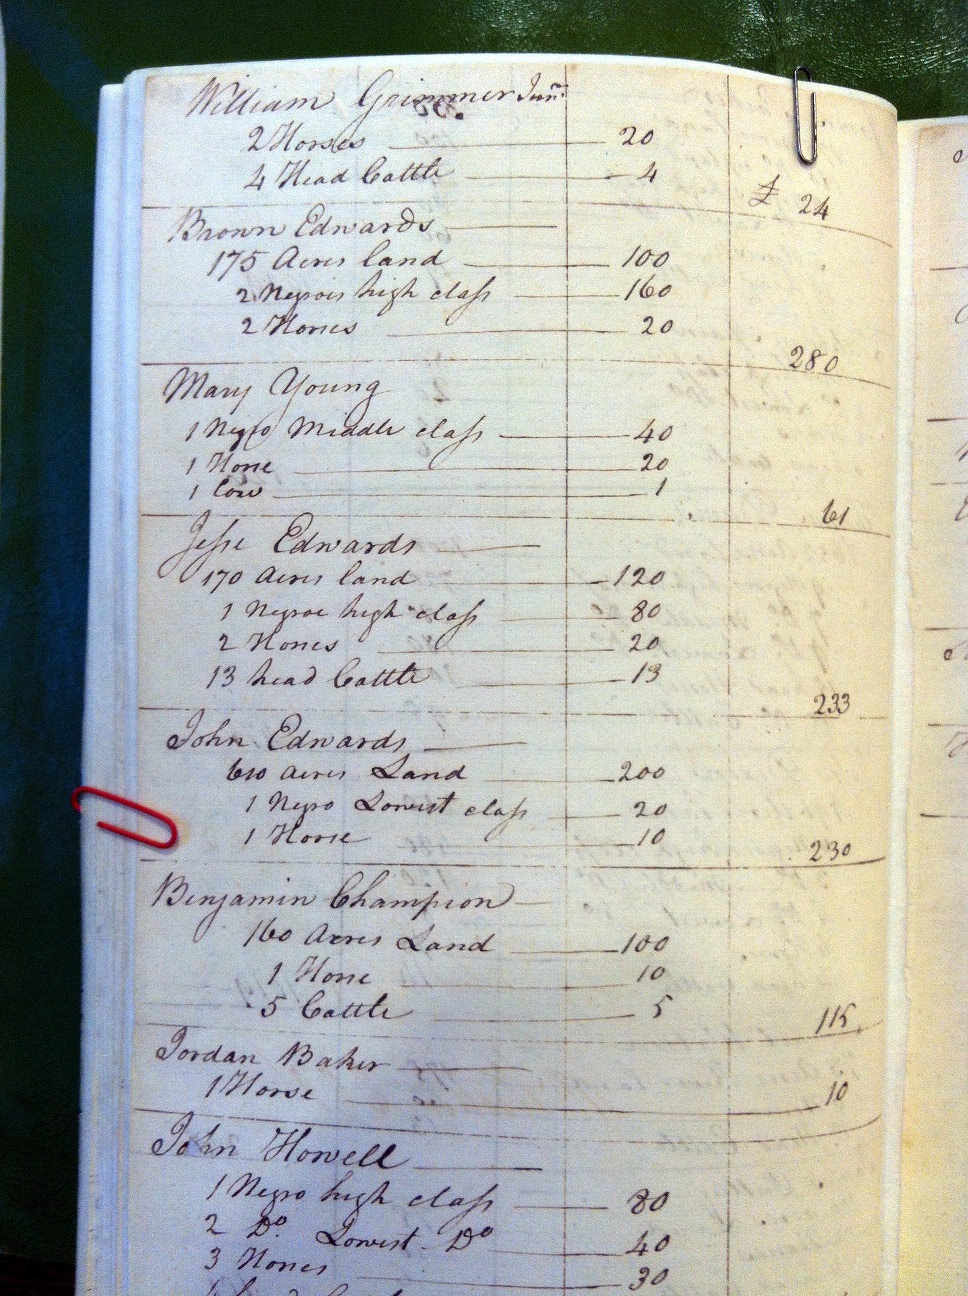 William Grimmer Junr.
2 Horses 20
4 Head Cattle 4
£ 24
Brown Edwards
175 Acres land 100
2 Negroes high class 160
2 Horses 20
280
Mary Young
1 Negro Middle class 40
1 Horse 20
1 Cow 1
61
Jesse Edwards
170 Acres land 120
1 Negroe high class 80
2 Horses 20
13 head Cattle 13
233
John Edwards
610 acres Land 200
1 Negro Lowest class 20
1 Horse 10
230
Benjamin Champion
160 Acres Land 100
1 Horse 10
5 Cattle 5
115
Jordan Baker
1 Horse 10
John Howell
1 Negro high class 80
2 Do. Lowest Do 40
3 Horses 30